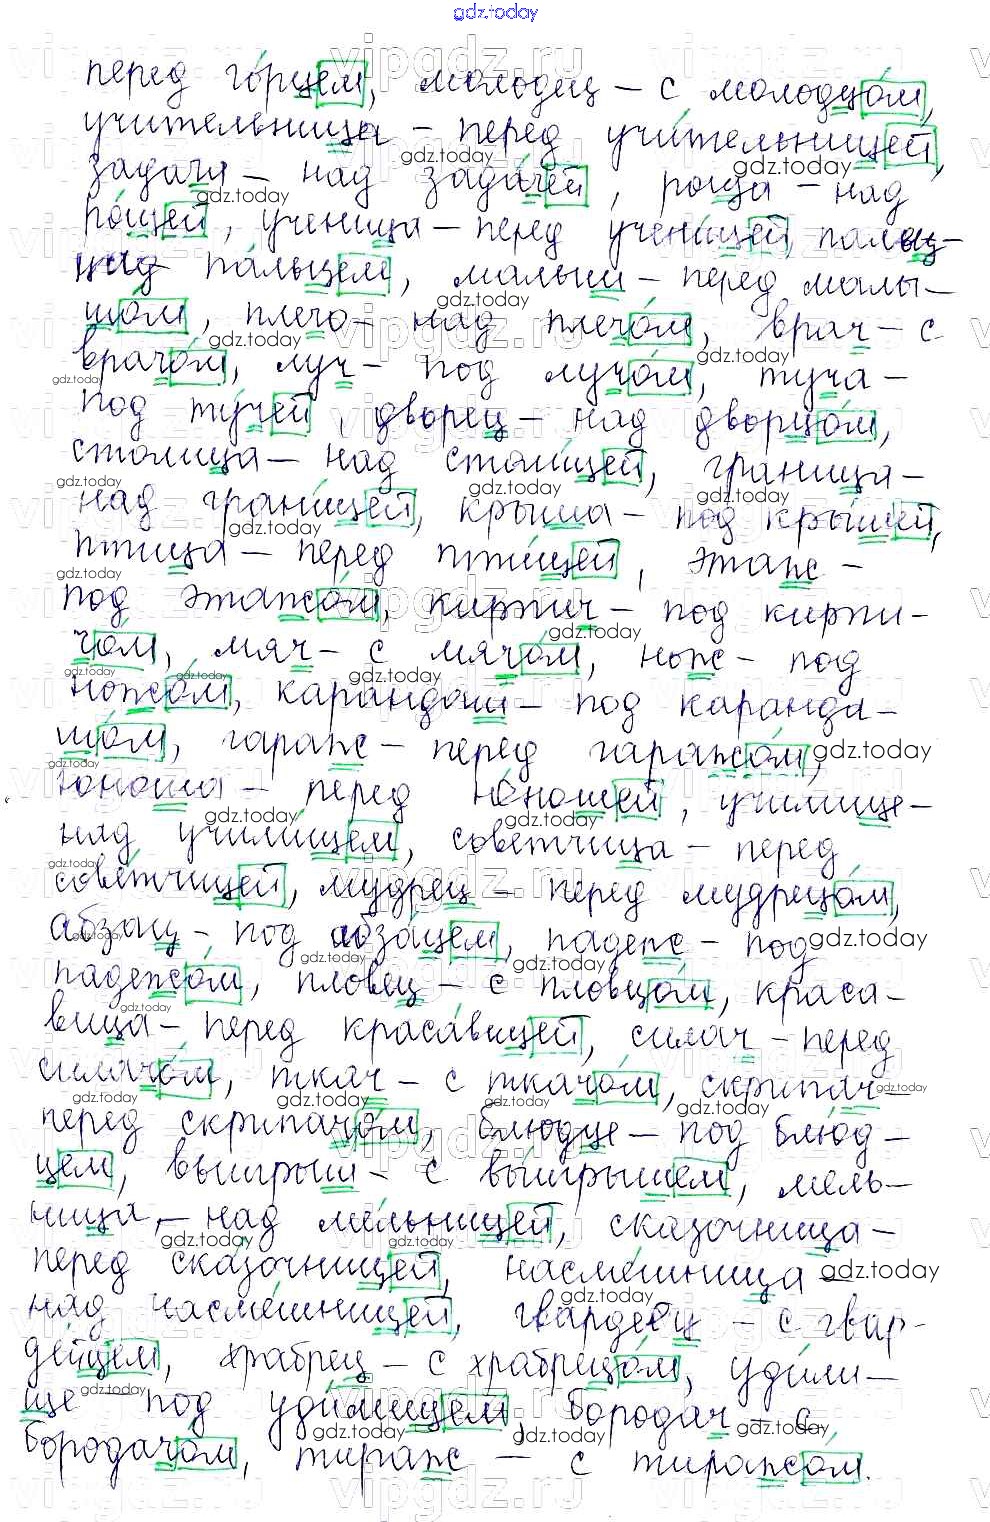 gdz.today
перед горцем, молодец – с молодцом,
учительница – перед учительницей,
задача – над задачей, роща – над
рощей, ученица – перед ученицей, палец –
над пальцем, малыш – перед малы-
шом, плечо – над плечом, врач – с
врачом, луч – под лучом, туча –
под тучей, дворец – над дворцом,
столица – над столицей, граница –
над границей, крыша – под крышей,
птица – перед птицей, этаж –
под этажом, кирпич – под кирпи-
чом, мяч – с мячом, нож – под
ножом, карандаш – под каранда-
шом, гараж – перед гаражом,
юноша – перед юношей, училище –
над училищем, советчица – перед
советчицей, мудрец – перед мудрецом,
абзац – под абзацем, падеж – под
падежом, пловец – с пловцом, краса-
вица – перед красавицей, силач – перед
силачом, ткач – с ткачом, скрипач –
перед скрипачом, блюдце – под блюд-
цем, выигрыш – с выигрышем, мель-
ница, – над мельницей, сказочница –
перед сказочницей, насмешница –
над насмешницей, гвардеец – с гвар-
дейцем, храбрец – с храбрецом, удили-
ще под удилищем, бородач – с
бородачом, тираж – с тиражом.